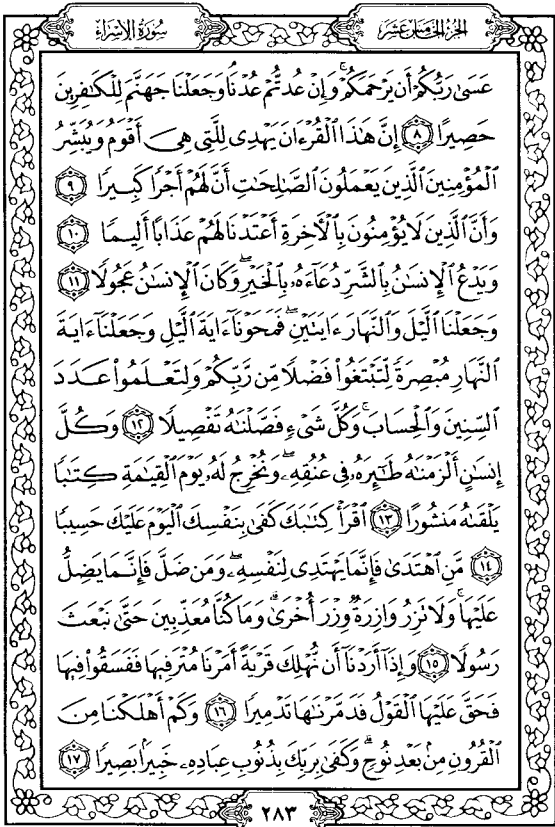 سُورَةُ الإِسْرَاءِ الجُزْءُ الخَامِسَ عَشَرَ
عَسَىٰ رَبُّكُمْ أَن يَرْحَمَكُمْ ۚ وَإِنْ عُدتُّمْ عُدْنَا ۘ وَجَعَلْنَا جَهَنَّمَ لِلْكَٰفِرِينَ
حَصِيرًا ٨ إِنَّ هَٰذَا ٱلْقُرْءَانَ يَهْدِى لِلَّتِى هِىَ أَقْوَمُ وَيُبَشِّرُ
ٱلْمُؤْمِنِينَ ٱلَّذِينَ يَعْمَلُونَ ٱلصَّٰلِحَٰتِ أَنَّ لَهُمْ أَجْرًا كَبِيرًا ٩
وَأَنَّ ٱلَّذِينَ لَا يُؤْمِنُونَ بِٱلْءَاخِرَةِ أَعْتَدْنَا لَهُمْ عَذَابًا أَلِيمًا ١٠
وَيَدْعُ ٱلْإِنسَٰنُ بِٱلشَّرِّ دُعَآءَهُۥ بِٱلْخَيْرِ ۖ وَكَانَ ٱلْإِنسَٰنُ عَجُولًا ١١
وَجَعَلْنَا ٱلَّيْلَ وَٱلنَّهَارَ ءَايَتَيْنِ ۖ فَمَحَوْنَآ ءَايَةَ ٱلَّيْلِ وَجَعَلْنَآ ءَايَةَ
ٱلنَّهَارِ مُبْصِرَةً لِّتَبْتَغُوا۟ فَضْلًا مِّن رَّبِّكُمْ وَلِتَعْلَمُوا۟ عَدَدَ
ٱلسِّنِينَ وَٱلْحِسَابَ ۚ وَكُلَّ شَىْءٍ فَصَّلْنَٰهُ تَفْصِيلًا ١٢ وَكُلَّ
إِنسَٰنٍ أَلْزَمْنَٰهُ طَٰٓئِرَهُۥ فِى عُنُقِهِۦ ۖ وَنُخْرِجُ لَهُۥ يَوْمَ ٱلْقِيَٰمَةِ كِتَٰبًا
يَلْقَىٰهُ مَنشُورًا ١٣ ٱقْرَأْ كِتَٰبَكَ كَفَىٰ بِنَفْسِكَ ٱلْيَوْمَ عَلَيْكَ حَسِيبًا
١٤ مَّنِ ٱهْتَدَىٰ فَإِنَّمَا يَهْتَدِى لِنَفْسِهِۦ ۖ وَمَن ضَلَّ فَإِنَّمَا يَضِلُّ
عَلَيْهَا ۚ وَلَا تَزِرُ وَازِرَةٌ وِزْرَ أُخْرَىٰ ۗ وَمَا كُنَّا مُعَذِّبِينَ حَتَّىٰ نَبْعَثَ
رَسُولًا ١٥ وَإِذَآ أَرَدْنَآ أَن نُّهْلِكَ قَرْيَةً أَمَرْنَا مُتْرَفِيهَا فَفَسَقُوا۟ فِيهَا
فَحَقَّ عَلَيْهَا ٱلْقَوْلُ فَدَمَّرْنَٰهَا تَدْمِيرًا ١٦ وَكَمْ أَهْلَكْنَا مِنَ
ٱلْقُرُونِ مِنۢ بَعْدِ نُوحٍ ۗ وَكَفَىٰ بِرَبِّكَ بِذُنُوبِ عِبَادِهِۦ خَبِيرًۢا بَصِيرًا ١٧
٢٨٣